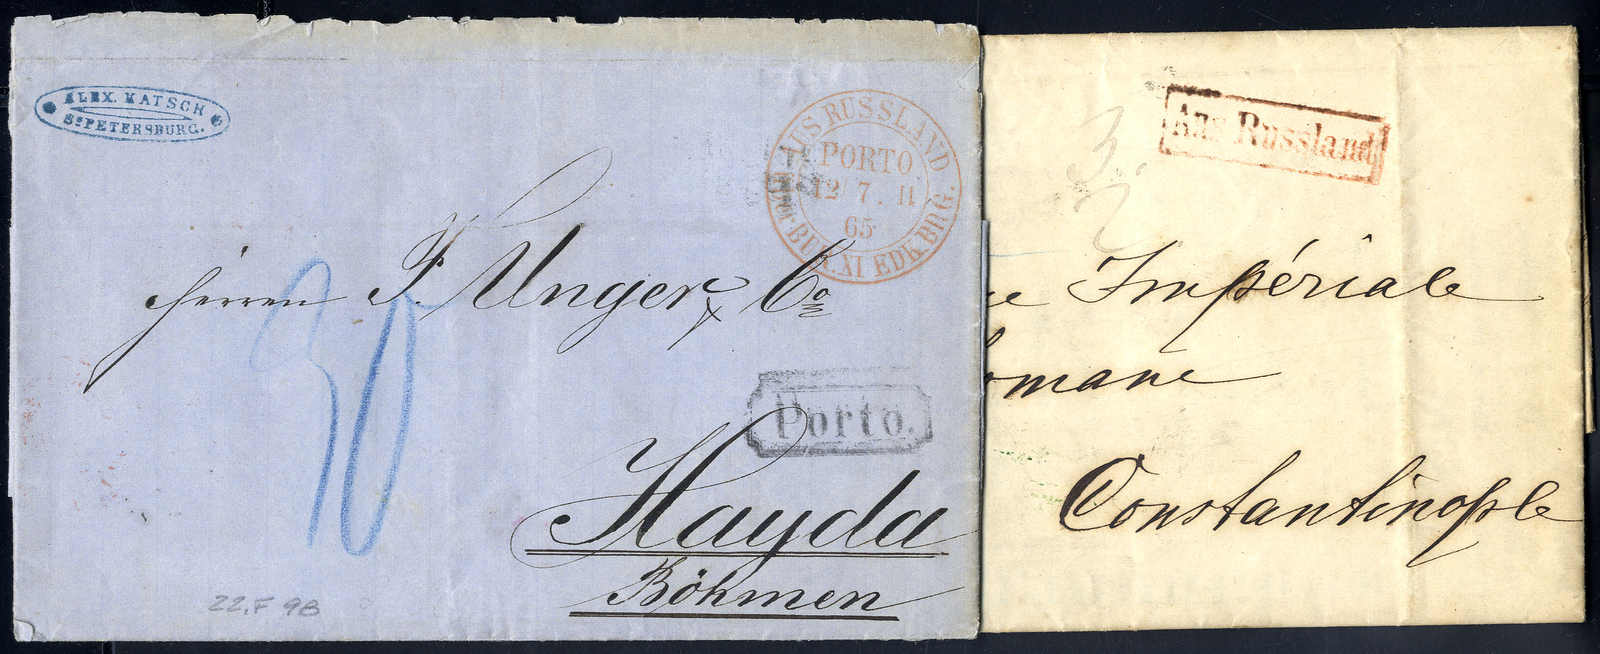 ALEX. KATSCH
St PETERSBURG.
AUS RUSSLAND
PORTO
12 7. II
65
BUR. XI EDK. BRG.
Herren F. Unger & Co
30
Porto.
Hayda
Böhmen
22.F 98
Aus Russland
3
Impériale
omane
Constantinople